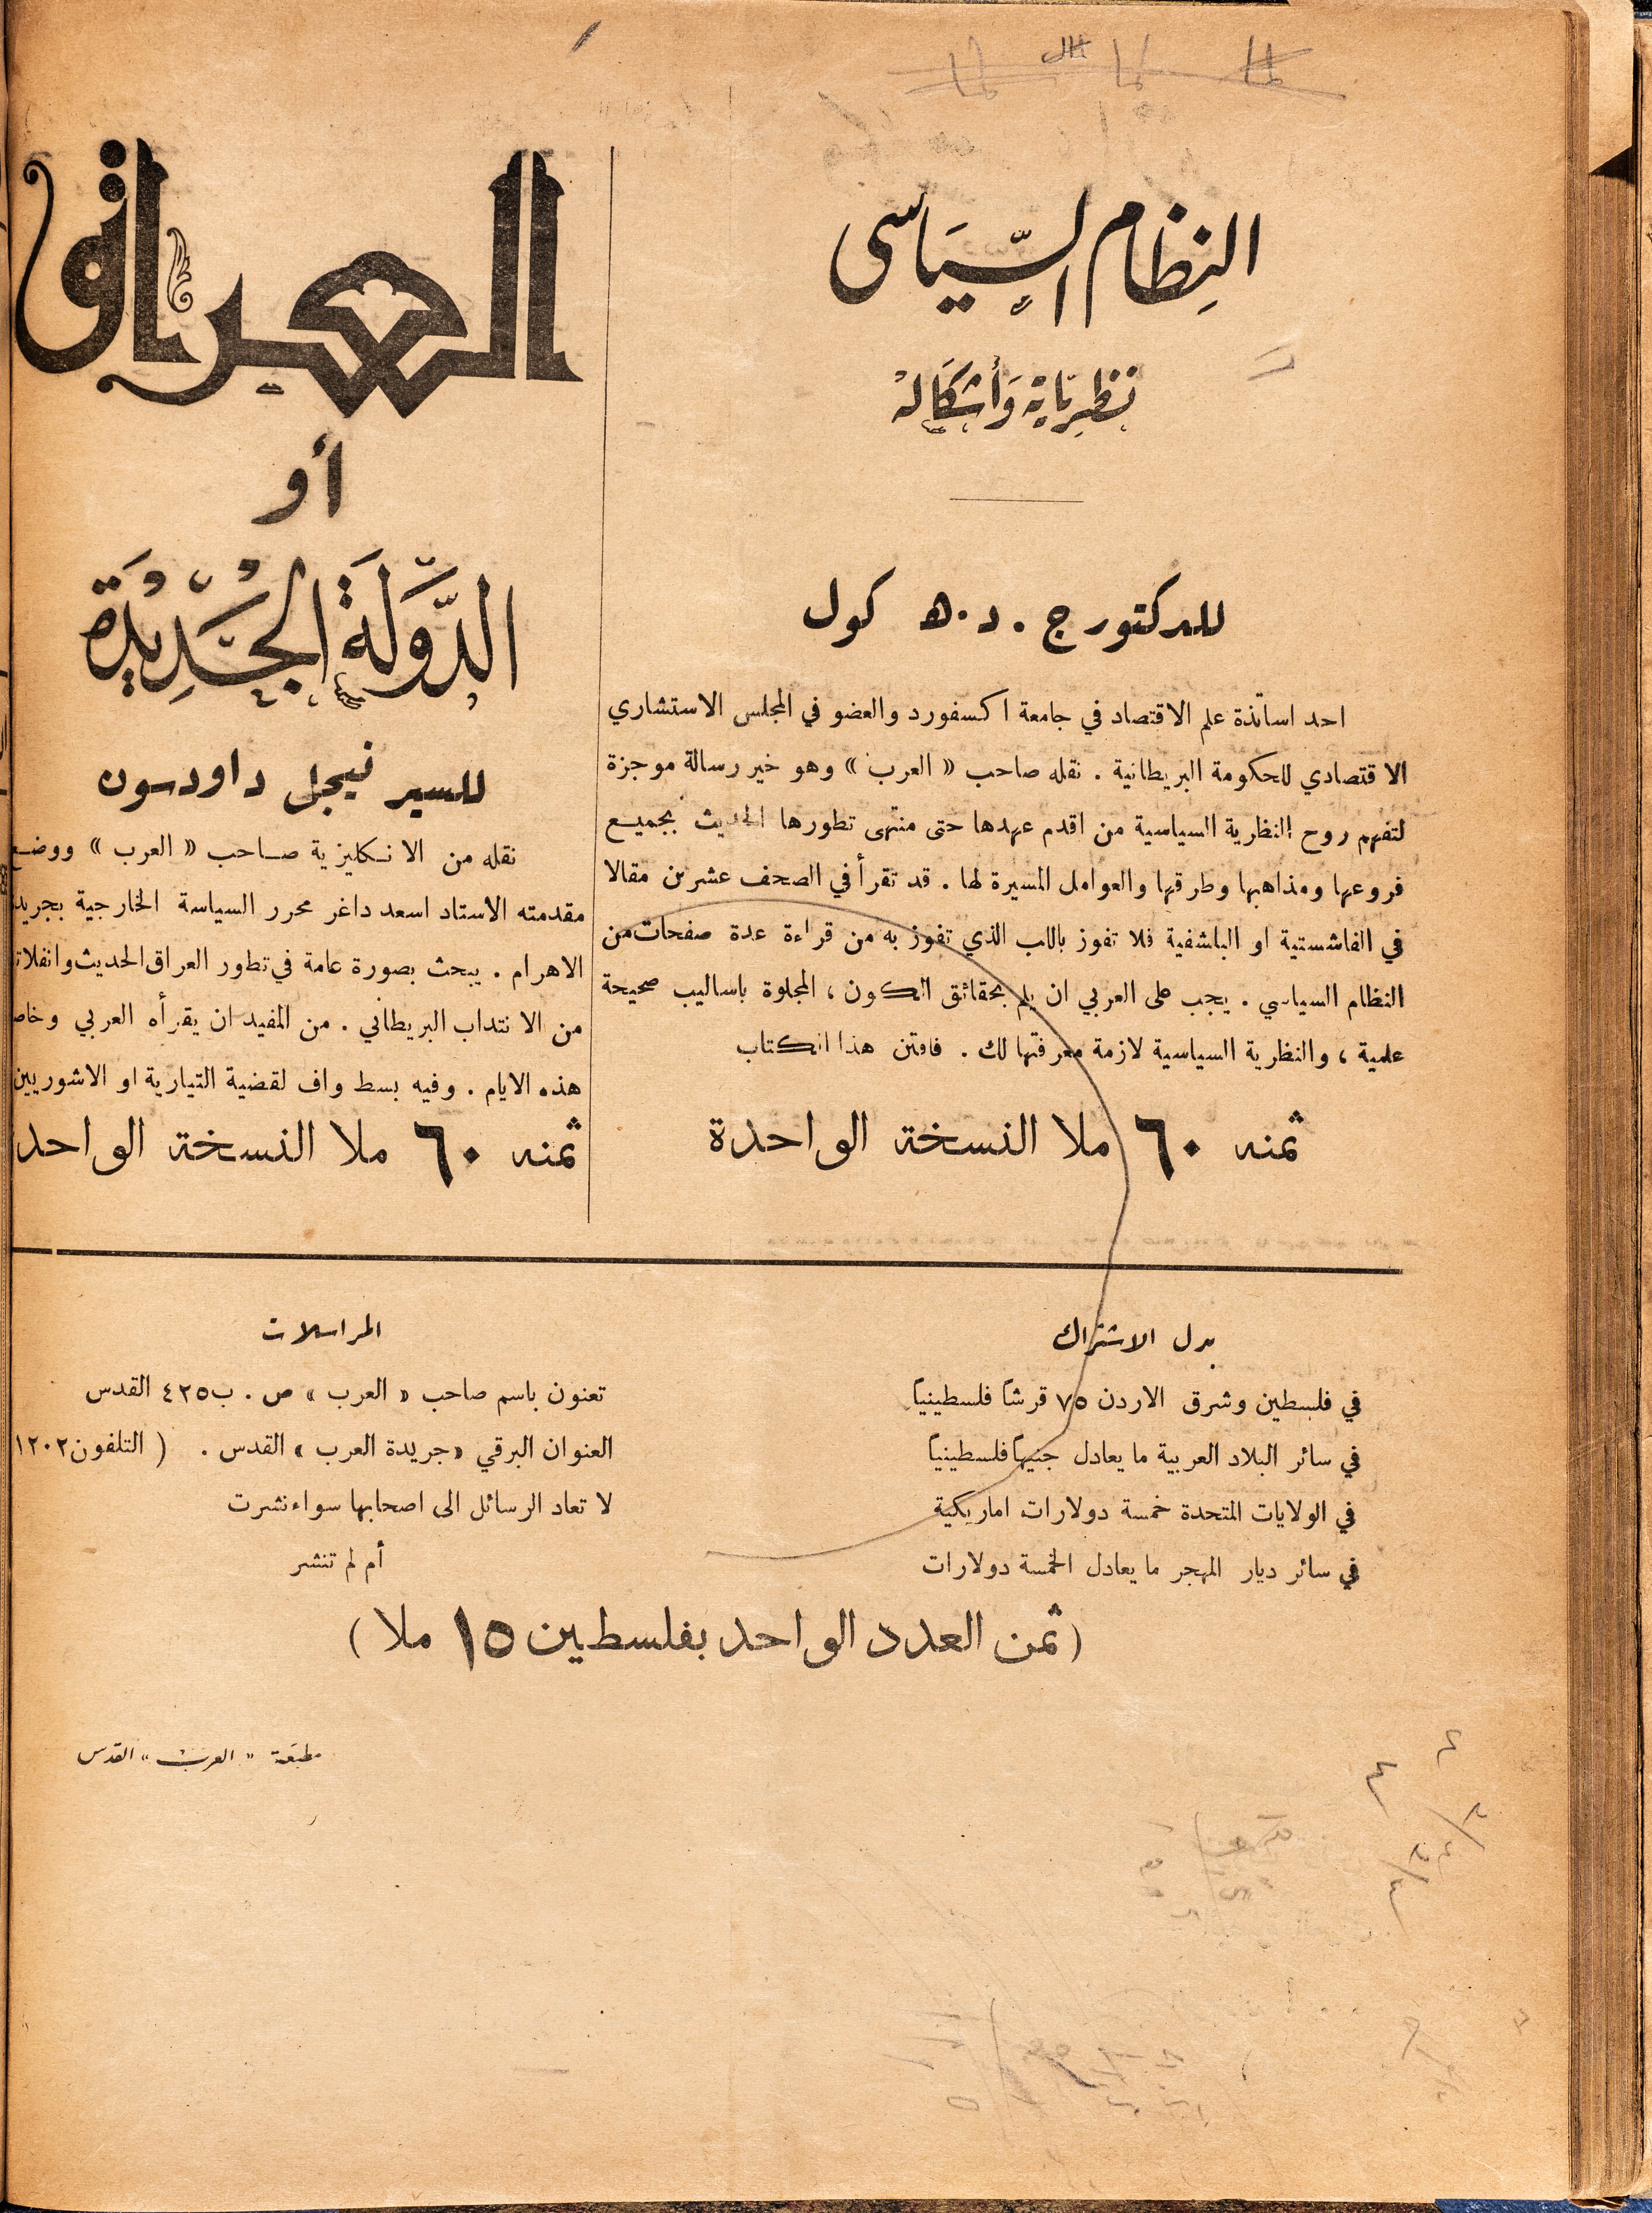 النظام السياسى
نظرياته وأشكاله
للدكتور ج . د . ه كول
احد اساتذة علم الاقتصاد في جامعة اكسفورد والعضو في المجلس الاستشاري
الاقتصادي للحكومة البريطانية . نقله صاحب « العرب » وهو خير رسالة موجزة
لتفهم روح النظرية السياسية من اقدم عهدها حتى منتهى تطورها الحديث بجميع
فروعها ومذاهبها وطرقها والعوامل المسيرة لها . قد تقرأ في الصحف عشرين مقالا
في الفاشستية او البلشفية فلا تفوز باللب الذي تفوز به من قراءة عدة صفحات من
النظام السياسي . يجب على العربي ان يلم بحقائق الكون ، المجلوة باساليب صحيحة
علمية ، والنظرية السياسية لازمة معرفتها لك . فاقتن هذا الكتاب
ثمنه ٦٠ ملا النسخة الواحدة
العراق
أو
الدَّولَة الجَدِيدة
للسير نيجل داودسون
نقله من الانكليزية صاحب « العرب » ووضع
مقدمته الاستاد اسعد داغر محرر السياسة الخارجية بجريد
الاهرام . يبحث بصورة عامة في تطور العراق الحديث وانفلات
من الانتداب البريطاني . من المفيد ان يقرأه العربي وخاص
هذه الايام . وفيه بسط واف لقضية التيارية او الاشوريين
ثمنه ٦٠ ملا النسخة الواحد
بدل الاشتراك
في فلسطين وشرق الاردن ٧٥ قرشاً فلسطينياً
في سائر البلاد العربية ما يعادل جنيهاً فلسطينياً
في الولايات المتحدة خمسة دولارات اماريكية
في سائر ديار المهجر ما يعادل الخمسة دولارات
المراسلات
تعنون باسم صاحب « العرب » ص . ب ٤٢٥ القدس
العنوان البرقي « جريدة العرب » القدس . ( التلفون ١٢٠٢
لا تعاد الرسائل الى اصحابها سواء نشرت
أم لم تنشر
( ثمن العدد الواحد بفلسطين ١٥ ملا )
مطبعة « العرب » القدس